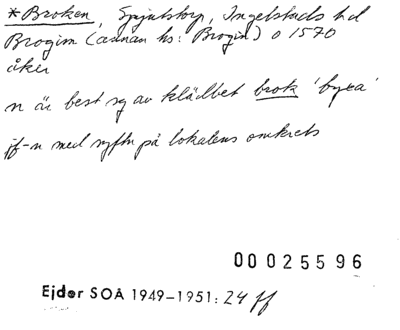 *Broken, Spjutstorp, Ingelstads hd
Brogim (annan hs: Brogin) o 1570
åker
n är best sg av klädbet brok 'byxa'
jf-n med syftn på lokalens omkrets
00025596
Ejder SOÅ 1949-1951: 24 ff